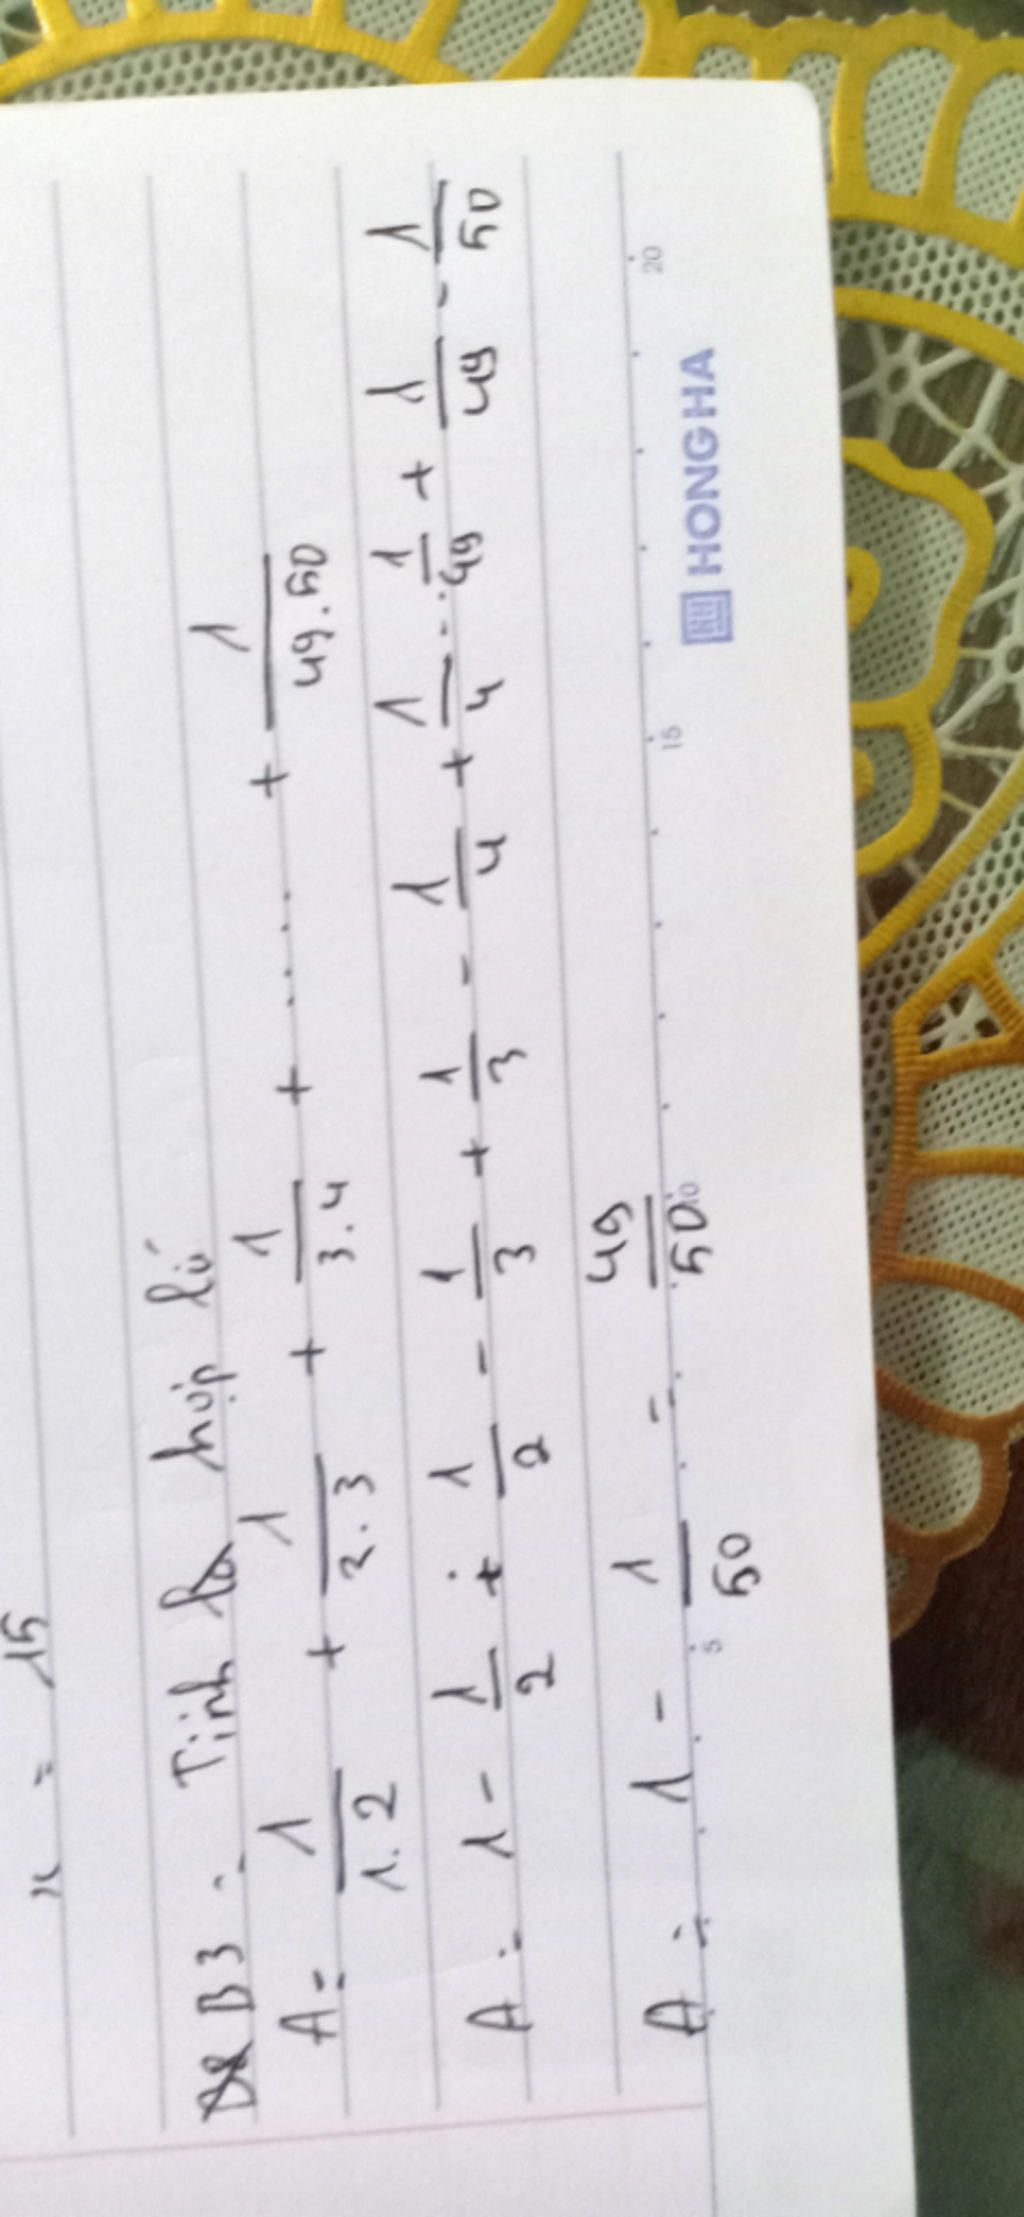 x = 15
B3: Tính hợp lí
A = 1/1.2 + 1/2.3 + 1/3.4 + ..... + 1/49.50
A = 1 - 1/2 + 1/2 - 1/3 + 1/3 - 1/4 + 1/4 ... 1/49 + 1/49 - 1/50
A = 1 - 1/50 = 49/50
5 10 15 20
HONG HA